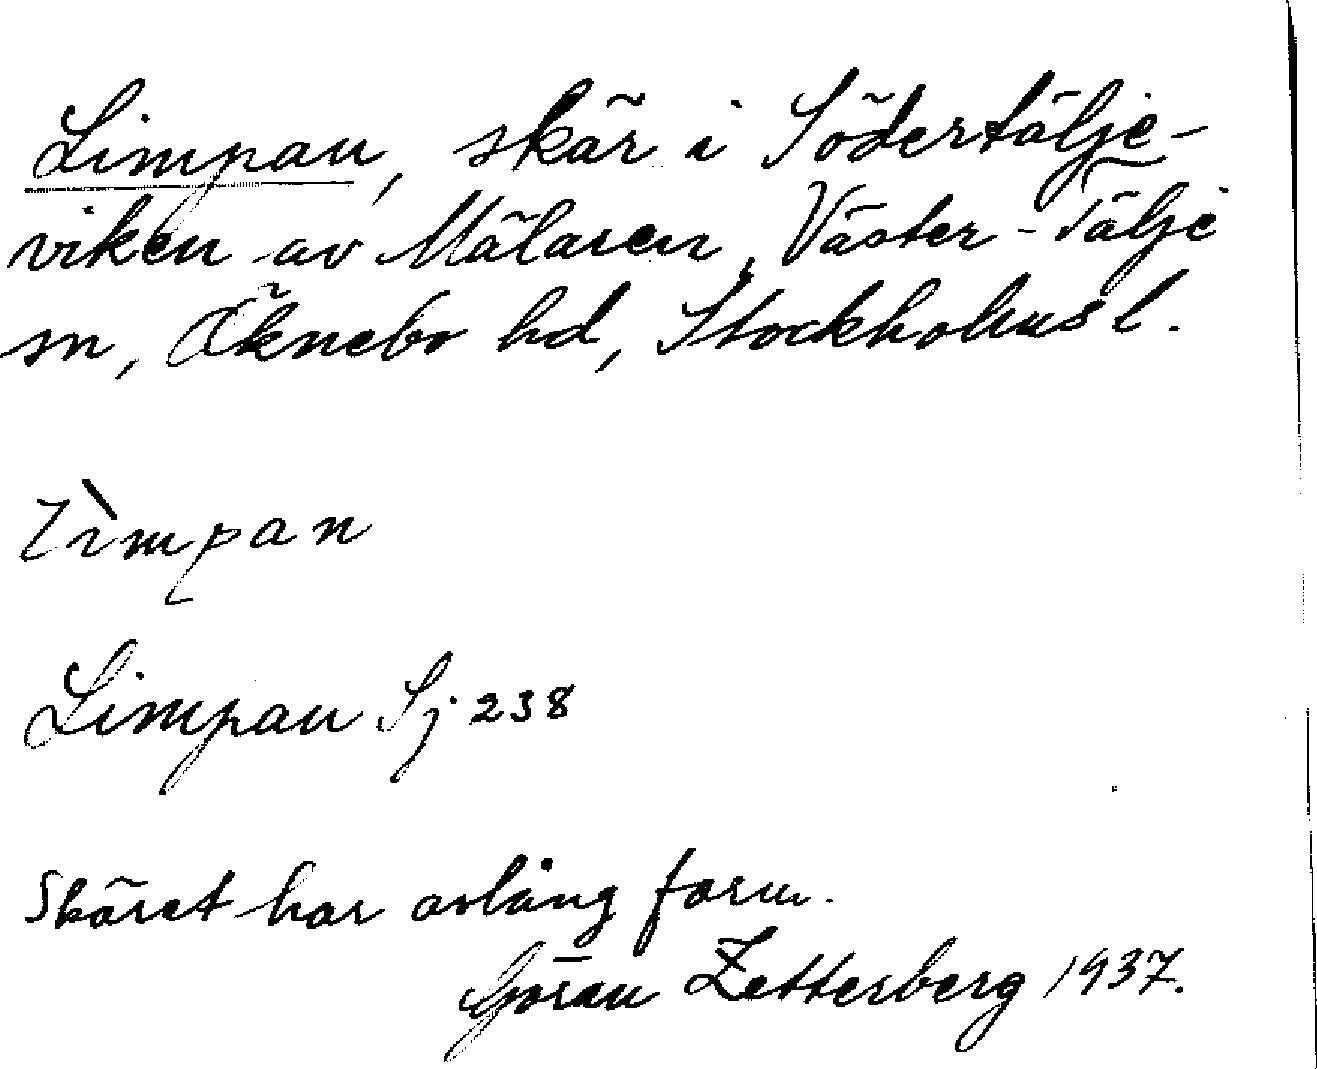 Limpan, skär i Södertälje-
viken av Mälaren, Väster-Tälje
sn, Öknebo hd, Stockholms l.
lìmpan
Limpan Sj 238
Skäret har avlång form.
Göran Zetterberg 1937.